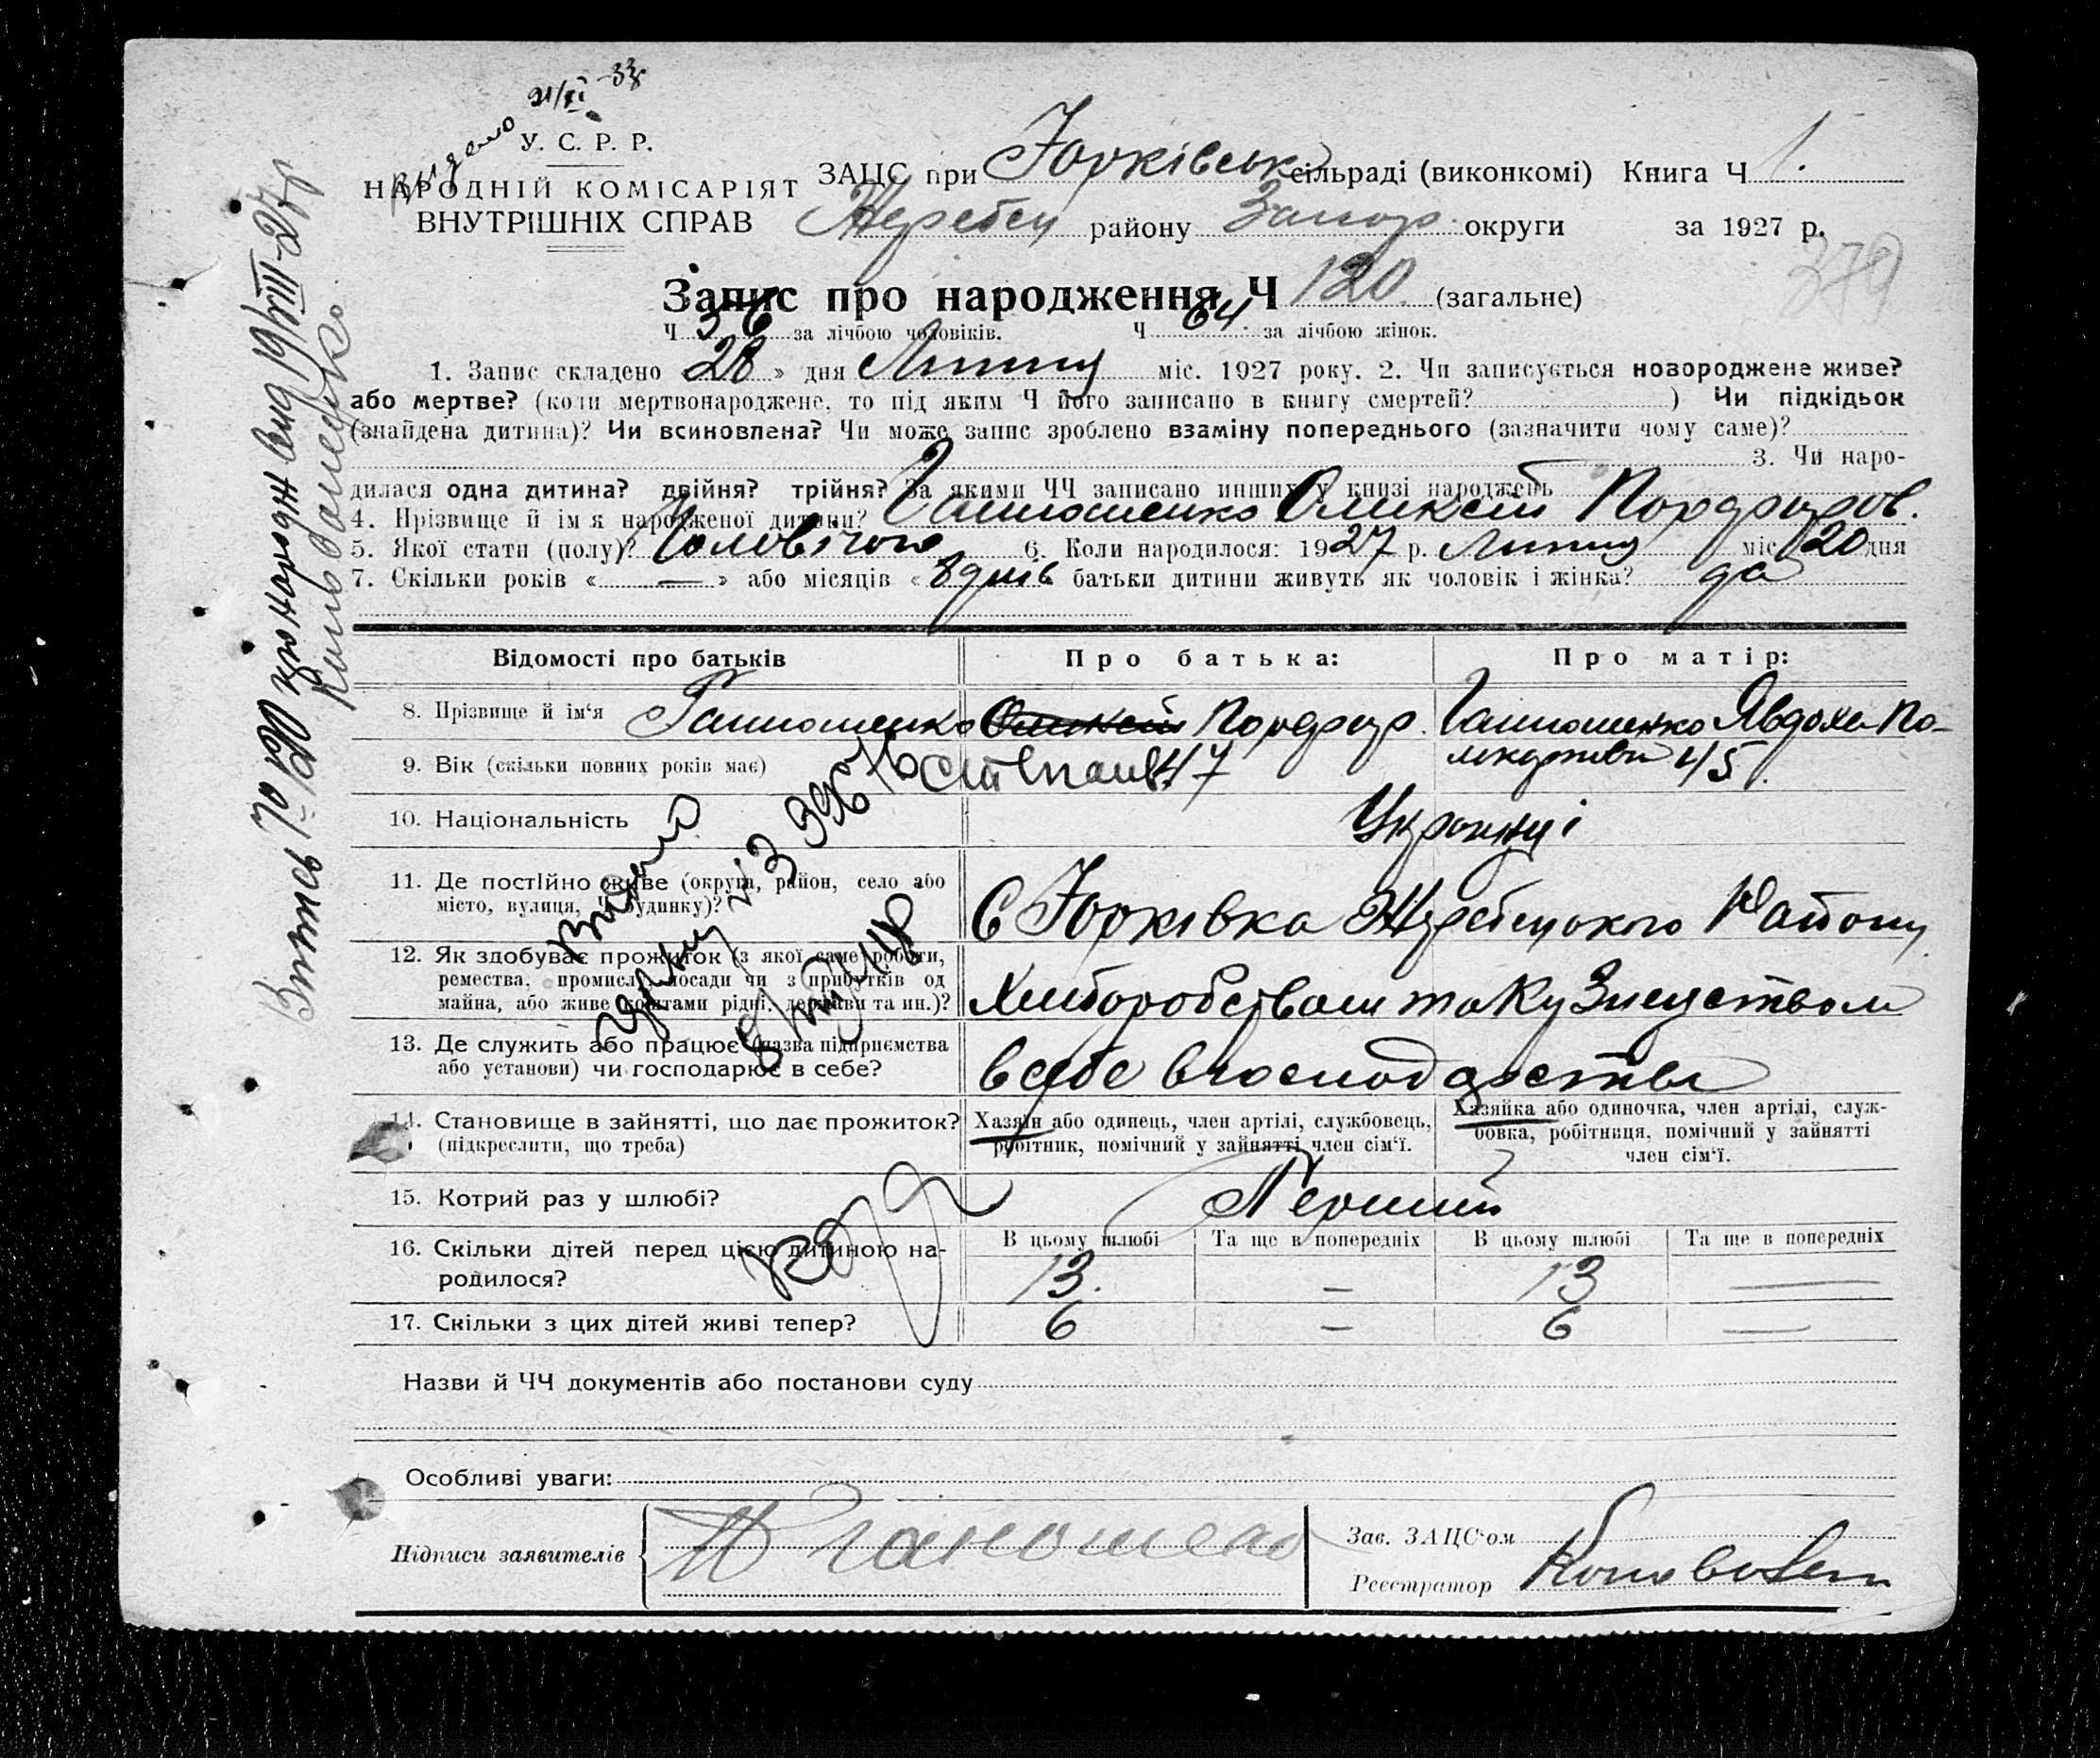 Видано 21/XI -33р
У. С. Р. Р.
НАРОДНІЙ КОМІСАРІЯТ
ВНУТРІШНІХ СПРАВ
ЗАЦС при Юрківськ сільраді (виконкомі) Книга Ч 1.
Жеребец району Запор. округи за 1927 р.
379
Запис про народження Ч 120 (загальне)
Ч 56 за лічбою чоловіків. Ч 64 за лічбою жінок.
1. Запис складено 28 » дня Липня міс. 1927 року. 2. Чи записується новороджене живе?
або мертве? (коли мертвонароджене, то під яким Ч його записано в книгу смертей? ) Чи підкідьок
(знайдена дитина)? Чи всиновлена? Чи може запис зроблено взаміну попереднього (зазначити чому саме)?
3. Чи наро-
дилася одна дитина? двійня? трійня? За якими ЧЧ записано инших у книзі народжень
4. Прізвище й ім'я народженої дитини? Ганношенко Олексій Порфиров.
5. Якої стати (полу)? Чоловічого 6. Коли народилося: 1927 р. Липня міс. 20 дня
7. Скільки років « — » або місяців « 8 днів батьки дитини живуть як чоловік і жінка? да
Відомості про батьків Про батька: Про матір:
8. Прізвище й ім'я Ганношенко Олексій Порфир. Ганношенко Явдоха По-
9. Вік (скільки повних років має) Степанов 47 45
10. Національність Українці
11. Де постійно живе (округа, район, село або
місто, вулиця, Ч будинку)? С Юрківка Жеребецького Району
12. Як здобуває прожиток (з якої саме роботи,
ремества, промислу, посади чи з прибутків од
майна, або живе коштами рідні, держави та ин.)? Хліборобством та Кузнецтвом
13. Де служить або працює (назва підприємства
або установи) чи господарює в себе? в себе в господарстві
14. Становище в зайнятті, що дає прожиток?
(підкреслити, що треба)
Хазяїн або одинець, член артілі, службовець,
робітник, помічний у зайнятті член сім'ї.
Хазяйка або одиночка, член артілі, служ-
бовка, робітниця, помічний у зайнятті
член сім'ї.
15. Котрий раз у шлюбі? Перший
16. Скільки дітей перед цією дитиною на-
родилося?
В цьому шлюбі Та ще в попередніх В цьому шлюбі Та ще в попередніх
13. — 13 —
17. Скільки з цих дітей живі тепер? 6 — 6 —
Назви й ЧЧ документів або постанови суду
Особливі уваги:
Підписи заявителів
Зав. ЗАЦС'ом
Реєстратор